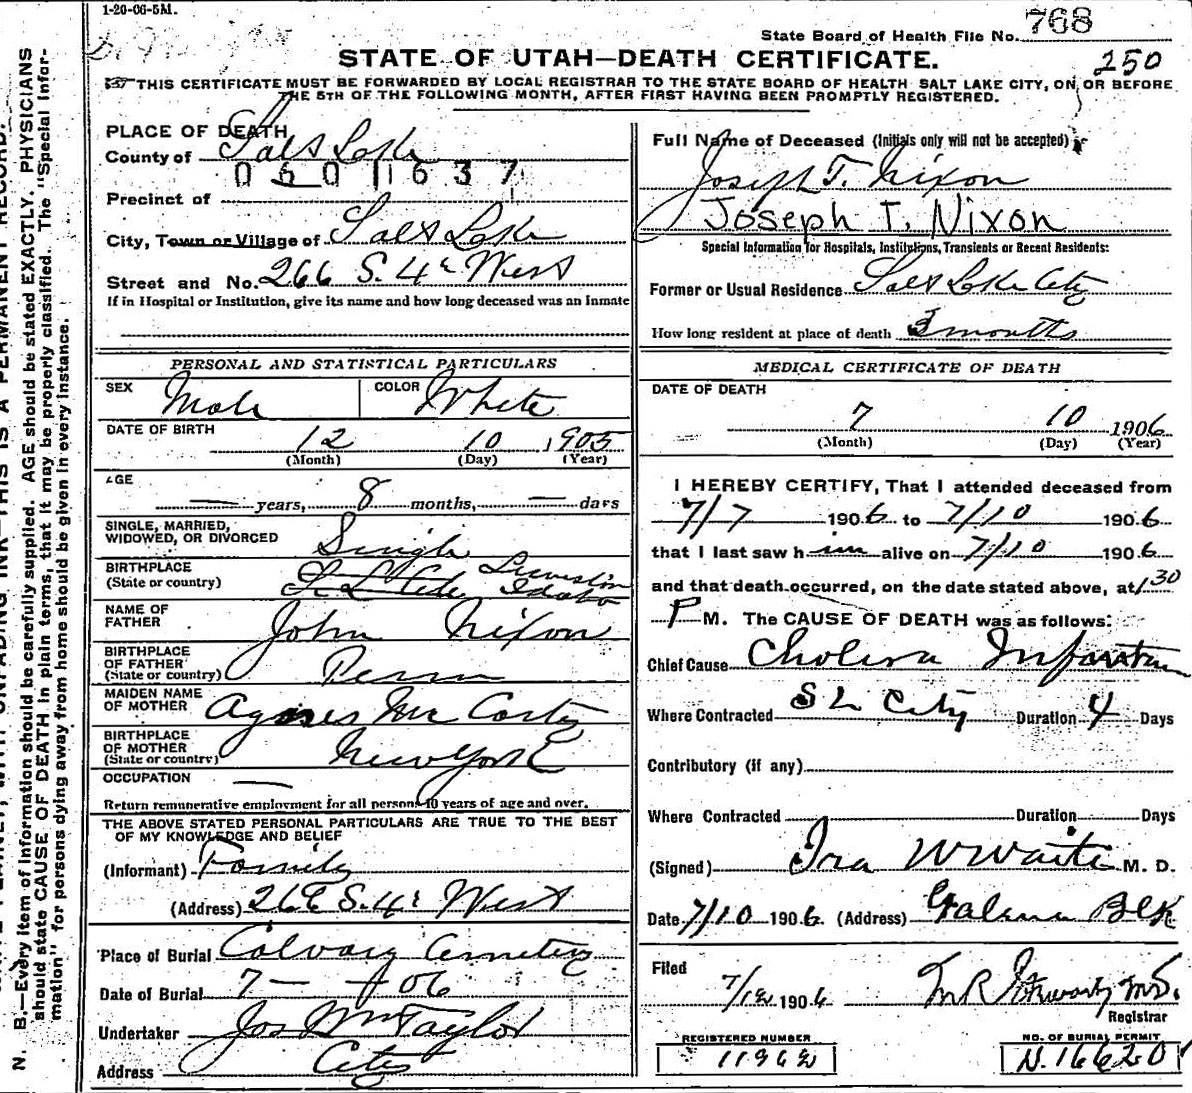 1-20-06-5M.
State Board of Health File No. 768
STATE OF UTAH—DEATH CERTIFICATE.
250
THIS CERTIFICATE MUST BE FORWARDED BY LOCAL REGISTRAR TO THE STATE BOARD OF HEALTH SALT LAKE CITY, ON OR BEFORE
THE 5TH OF THE FOLLOWING MONTH, AFTER FIRST HAVING BEEN PROMPTLY REGISTERED.
PLACE OF DEATH
County of Salt Lake
0601637
Precinct of
City, Town or Village of Salt Lake
Street and No. 266 S. 4th West
If in Hospital or Institution, give its name and how long deceased was an Inmate
PERSONAL AND STATISTICAL PARTICULARS
SEX Male COLOR White
DATE OF BIRTH
12 10 1905
(Month) (Day) (Year)
AGE
— years, 8 months, — days
SINGLE, MARRIED,
WIDOWED, OR DIVORCED Single
BIRTHPLACE Lewiston
(State or country) Idaho
NAME OF
FATHER John Nixon
BIRTHPLACE
OF FATHER Penn
(State or country)
MAIDEN NAME
OF MOTHER Agnes McCarty
BIRTHPLACE
OF MOTHER New York
(State or country)
OCCUPATION —
Return remunerative employment for all persons 10 years of age and over.
THE ABOVE STATED PERSONAL PARTICULARS ARE TRUE TO THE BEST
OF MY KNOWLEDGE AND BELIEF
(Informant) Family
(Address) 266 S. 4th West
Place of Burial Calvary Cemetery
Date of Burial 7 — 06
Undertaker Jos Wm Taylor
Address City
Full Name of Deceased (Initials only will not be accepted)
Joseph T. Nixon
Joseph T. Nixon
Special Information for Hospitals, Institutions, Transients or Recent Residents:
Former or Usual Residence Salt Lake City
How long resident at place of death 3 months
MEDICAL CERTIFICATE OF DEATH
DATE OF DEATH
7 10 1906
(Month) (Day) (Year)
I HEREBY CERTIFY, That I attended deceased from
7/7 1906 to 7/10 1906
that I last saw him alive on 7/10 1906
and that death occurred, on the date stated above, at 1 30
P M. The CAUSE OF DEATH was as follows:
Chief Cause Cholera Infantum
Where Contracted S L City Duration 4 Days
Contributory (if any)
Where Contracted Duration Days
(Signed) Ira W Waite M. D.
Date 7/10 1906. (Address) Galena Blk
Filed
7/12 1906 M.D.
Registrar
REGISTERED NUMBER
11962
NO. OF BURIAL PERMIT
N. 16620
N. B.—Every item of information should be carefully supplied. AGE should be stated EXACTLY. PHYSICIANS
should state CAUSE OF DEATH in plain terms, that it may be properly classified. The "Special Infor-
mation" for persons dying away from home should be given in every instance.